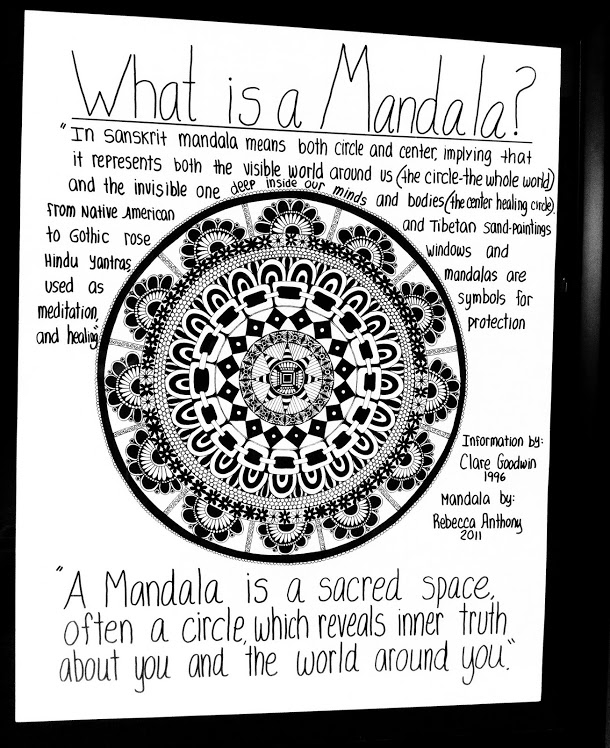 What is a Mandala?
"In Sanskrit mandala means both circle and center, implying that
it represents both the visible world around us (the circle-the whole world)
and the invisible one deep inside our minds and bodies (the center healing circle).
From Native American and Tibetan sand-paintings
to Gothic rose windows and
Hindu yantras mandalas are
used as symbols for
meditation, protection
and healing"
Information by:
Clare Goodwin
1996
Mandala by:
Rebecca Anthony
2011
"A Mandala is a sacred space,
often a circle, which reveals inner truth
about you and the world around you."